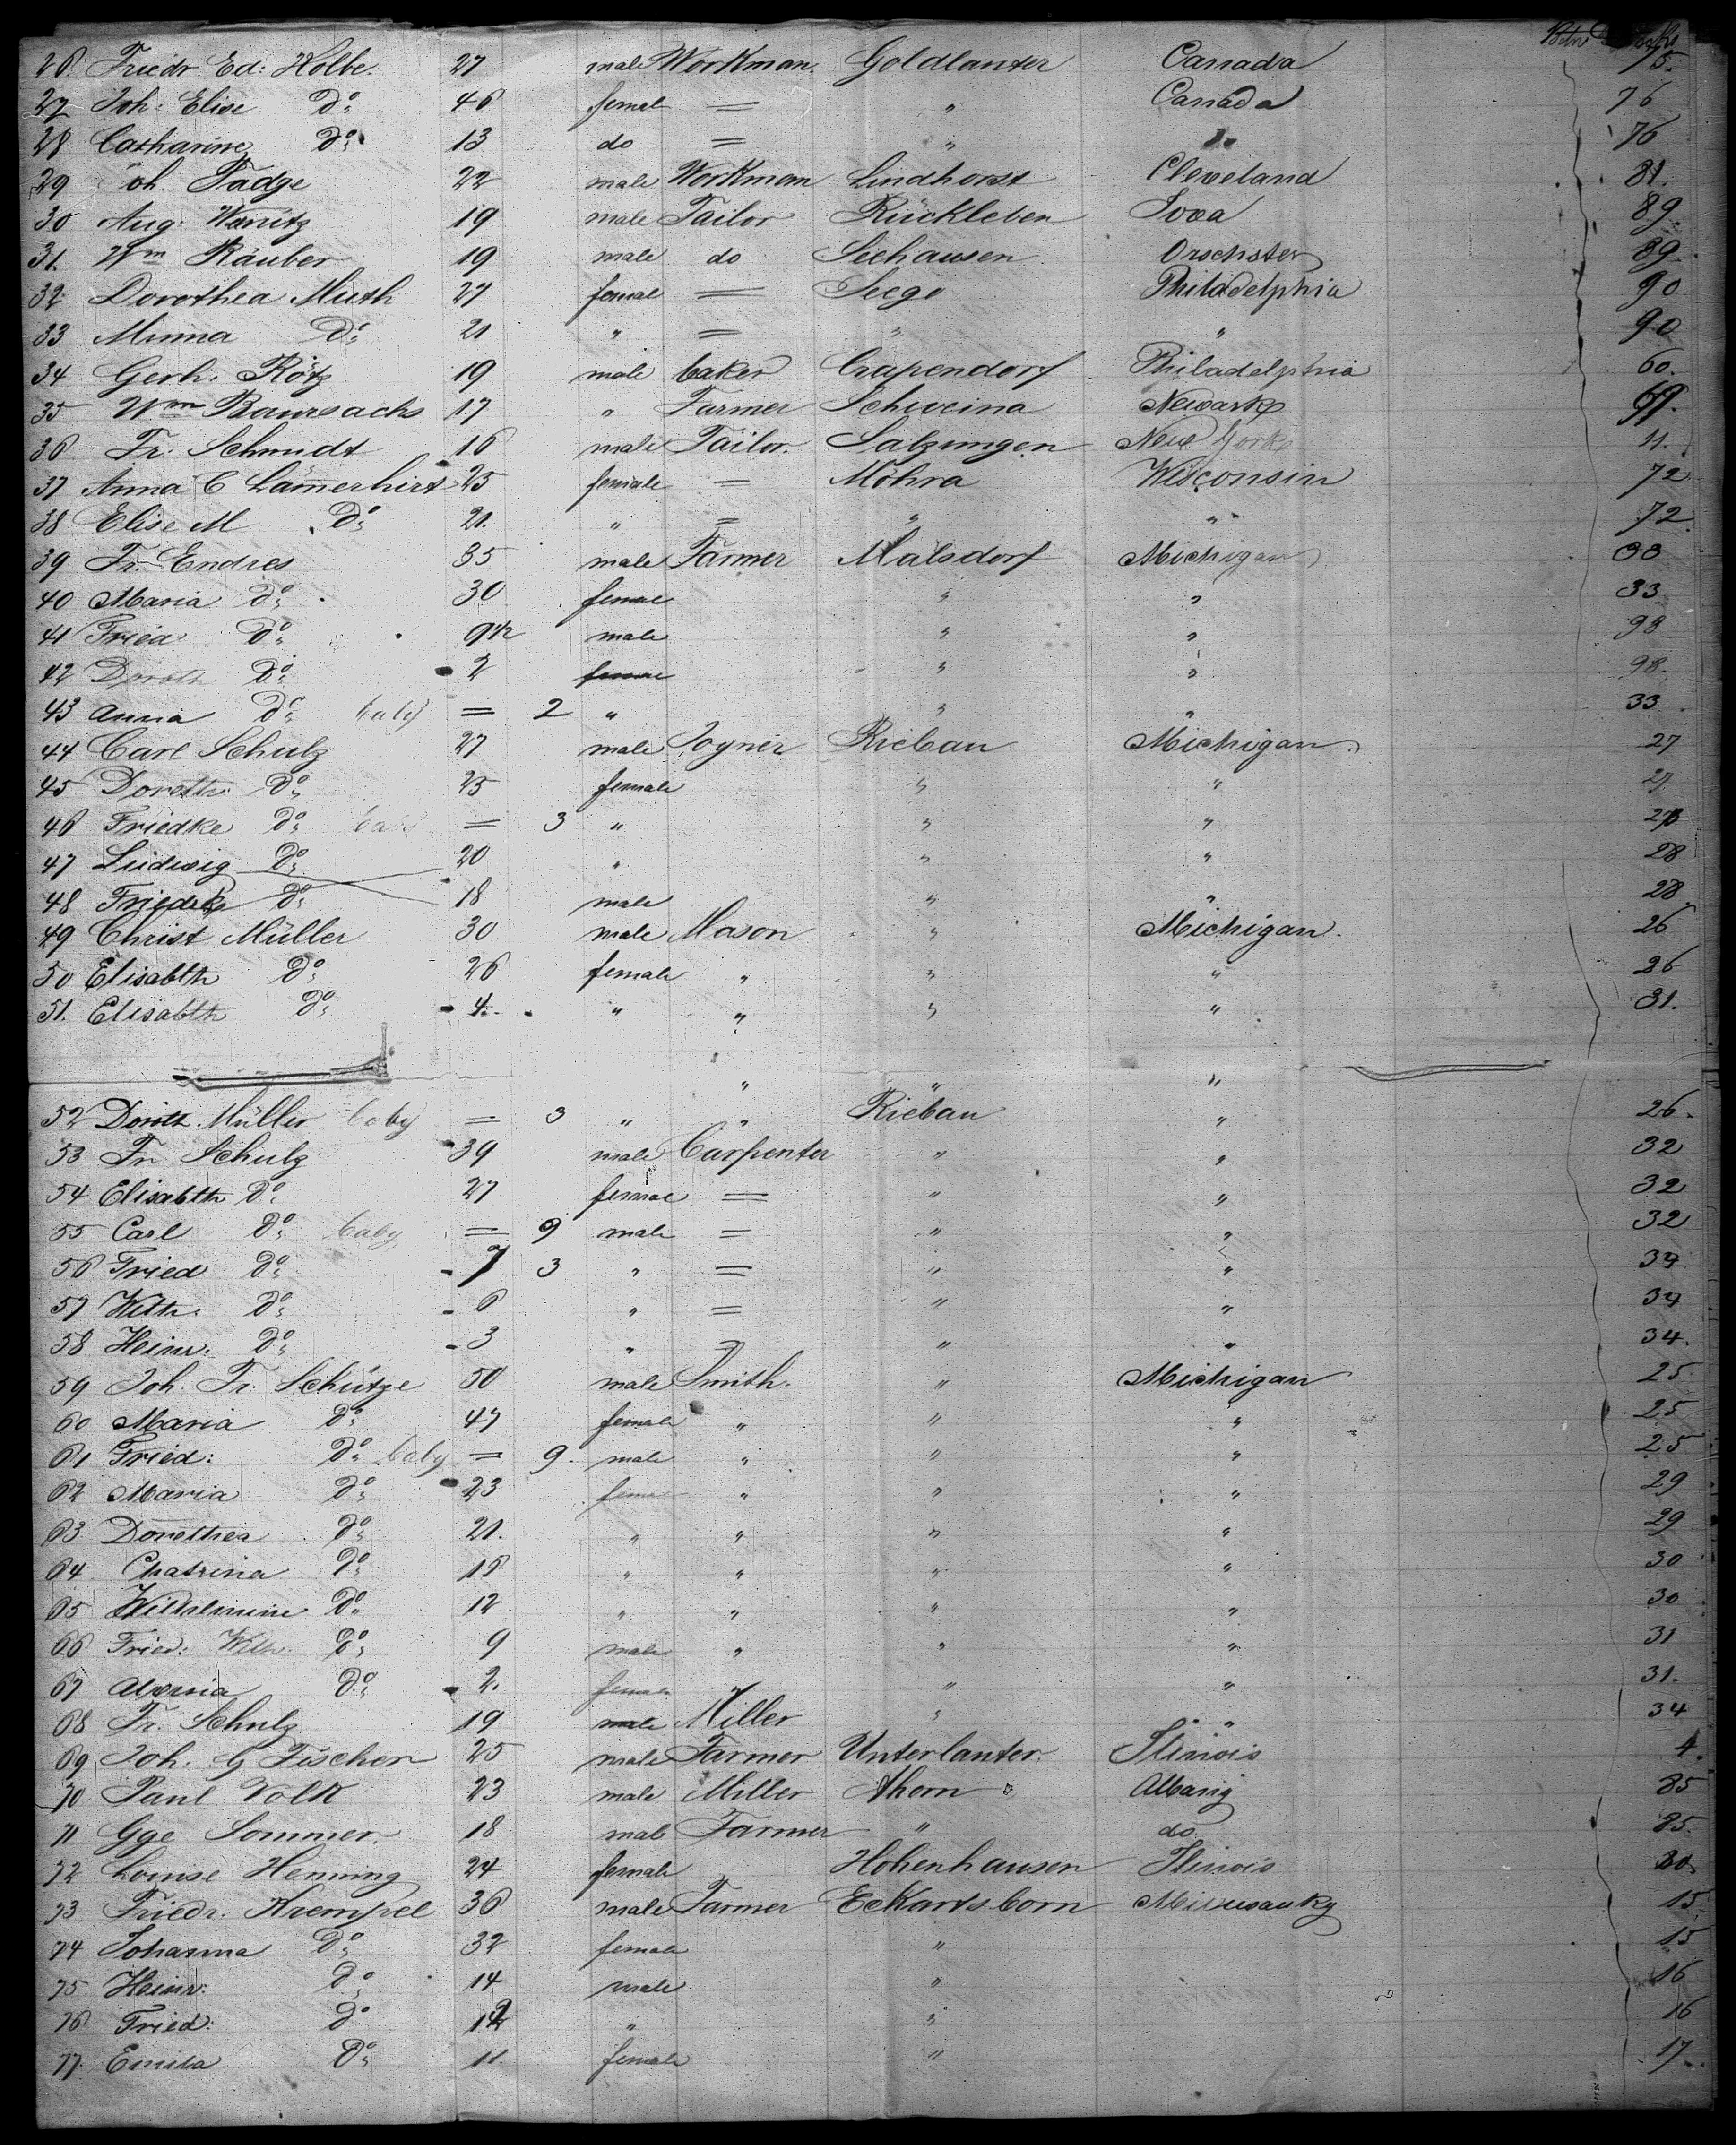 26. Friedr Ed: Kolbe. 27 male Workman. Goldlauter Canada 75.
27 Joh: Elise do 46 femal = " Canada 76
28 Catharine do 13 do = " do 76
29 Joh. Fadge 22 male Workman Lindhorst Cleveland 81.
30 Aug. Wanitz 19 male Tailor Rückleben Iova 89.
31. Wm Räuber 19 male do Seehausen Orschster 89.
32 Dorothea Muth 27 femal = Seege Philadelphia 90
33 Minna do 21 " = " " 90
34 Gerh. Rötz 19 male baker Crapendorf Philadelphia 60.
35 Wm Baursachs 17 " Farmer Schweina Newark 69.
36 Fr. Schmidt 16 male Tailor. Salzungen New York 11.
37 Anna C Lämerhirt 25 female = Möhra Wisconsin 72
38 Elise M do 21. " = " " 72
39 Fr. Endres 35 male Farmer Malsdorf Michigan 33
40 Maria do 30 femae " " 33
41 Fried do 9 1/2 male " " 98
42 Doroth do 2 femae " " 98.
43 Anna do baby = 2 " " " 33
44 Carl Schulz 27 male Joyner Riebau Michigan. 27
45 Doroth: do 25 female " " 27
46 Friedke do baby = 3 " " "
47 Ludwig do 20 " " " 28
48 Friedke do 18 male " " 28
49 Christ Müller 30 male Mason " Michigan. 26
50 Elisabth do 26 female " " " 26
51. Elisabth do 4. " " " " 31.
" " "
52 Doroth. Müller baby = 3 " " Riebau " 26.
53 Fr Schulz 39 male Carpenter " " 32
54 Elisabth do 27 femae = " " 32
55 Carl do baby = 9 male = " " 32
56 Fried do 7 3 " = " " 34
57 Wilh: do 6 " = " " 34
58 Heinr: do 3 " = " " 34.
59 Joh. Fr. Schütze 50 male Smith. " Michigan 25
60 Maria do 47 female " " " 25
61 Fried: do baby = 9. male " " " 25
62 Maria do 23 fema " " " 29
63. Dorethea do 21. " " " " 29
64 Chatrina do 18 " " " " 30
65 Wilhelmine do 12 " " " " 30
66 Fried: Wilh. do 9 male " " " 31
67 do 2. female " " 31.
68 Fr. Schulz 19 male Miller " " 34
69 Joh. G Fischer 25 male Farmer Unterlauter. Ilinois 4.
70 Paul Volk 23 male Miller Ahorn Albany 85
71 Gge Sommer. 18 mal Farmer " do. 85.
72 Louise Henning 24 female Hohenhausen Ilinois 80.
73 Friedr. Krempel 36 male Farmer Eckardsborn Miluwauky 15.
74 Johanna do 32 female " 15
75 Heinr: do 14 male " 16
76 Fried: do 12 " " 16
77. Emila do 11. female " 17.